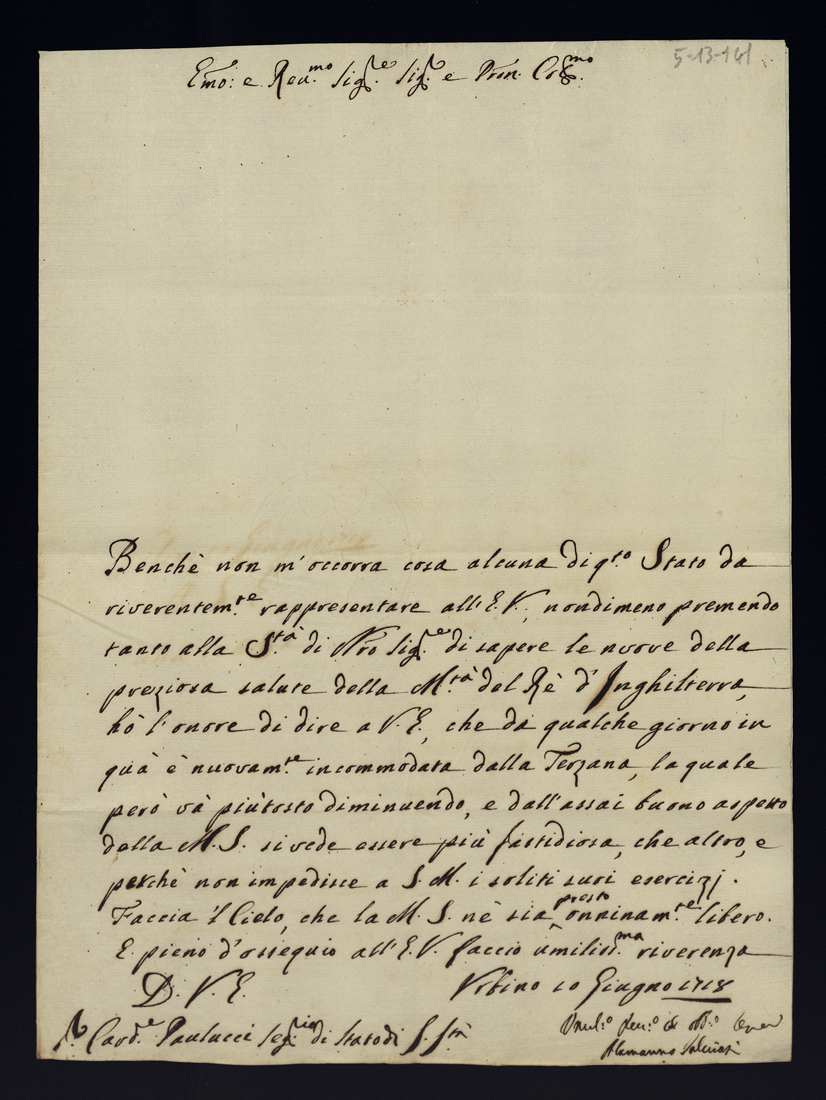 5-13-161
Emo: e Reu.mo Sig.re Sig.re e Pron. Col.mo
Benchè non m'occorra cosa alcuna di q.to Stato da
riverentem.te rappresentare all'E.V., nondimeno premendo
tanto alla S.tà di Nro Sig.re di sapere le nuove della
preziosa salute della M.tà del Rè d'Inghilterra,
hò l'onore di dire a V.E., che da qualche giorno in
quà è nuovam.te incommodata dalla Terzana, la quale
però và piùtosto diminuendo, e dall'assai buono aspetto
della M.S. si vede essere più fastidiosa, che altro, e
perchè non impedisce a S.M. i soliti suoi esercizj.
Faccia 'l Cielo, che la M.S. nè sia presto onninam.te libero.
E pieno d'ossequio all'E.V. faccio umiliss.ma riverenza
D. V. E. Urbino 10 Giugno 1718
S.r Card.e Paulucci Seg.rio di Stato di S. S.tà
Umil.o Deu.o et obb.o
Alamanno Salviati